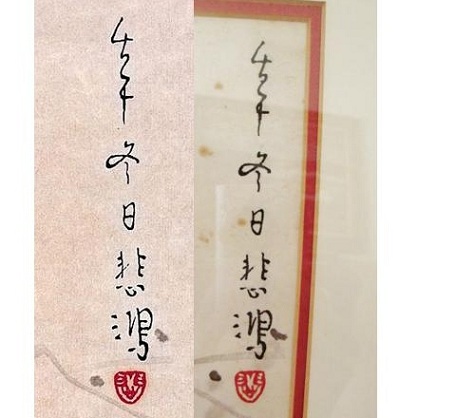 冬日悲鴻
冬日悲鴻